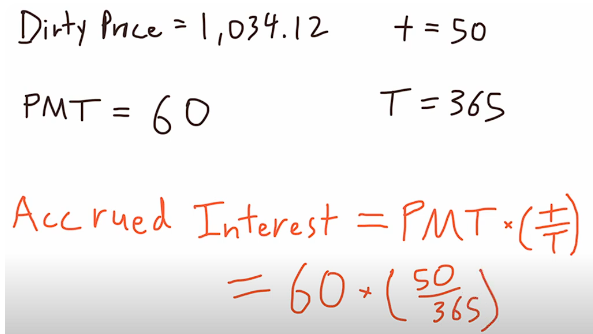 Dirty Price = 1,034.12 t = 50
PMT = 60 T = 365
Accrued Interest = PMT * (t/T)
= 60 * (50/365)